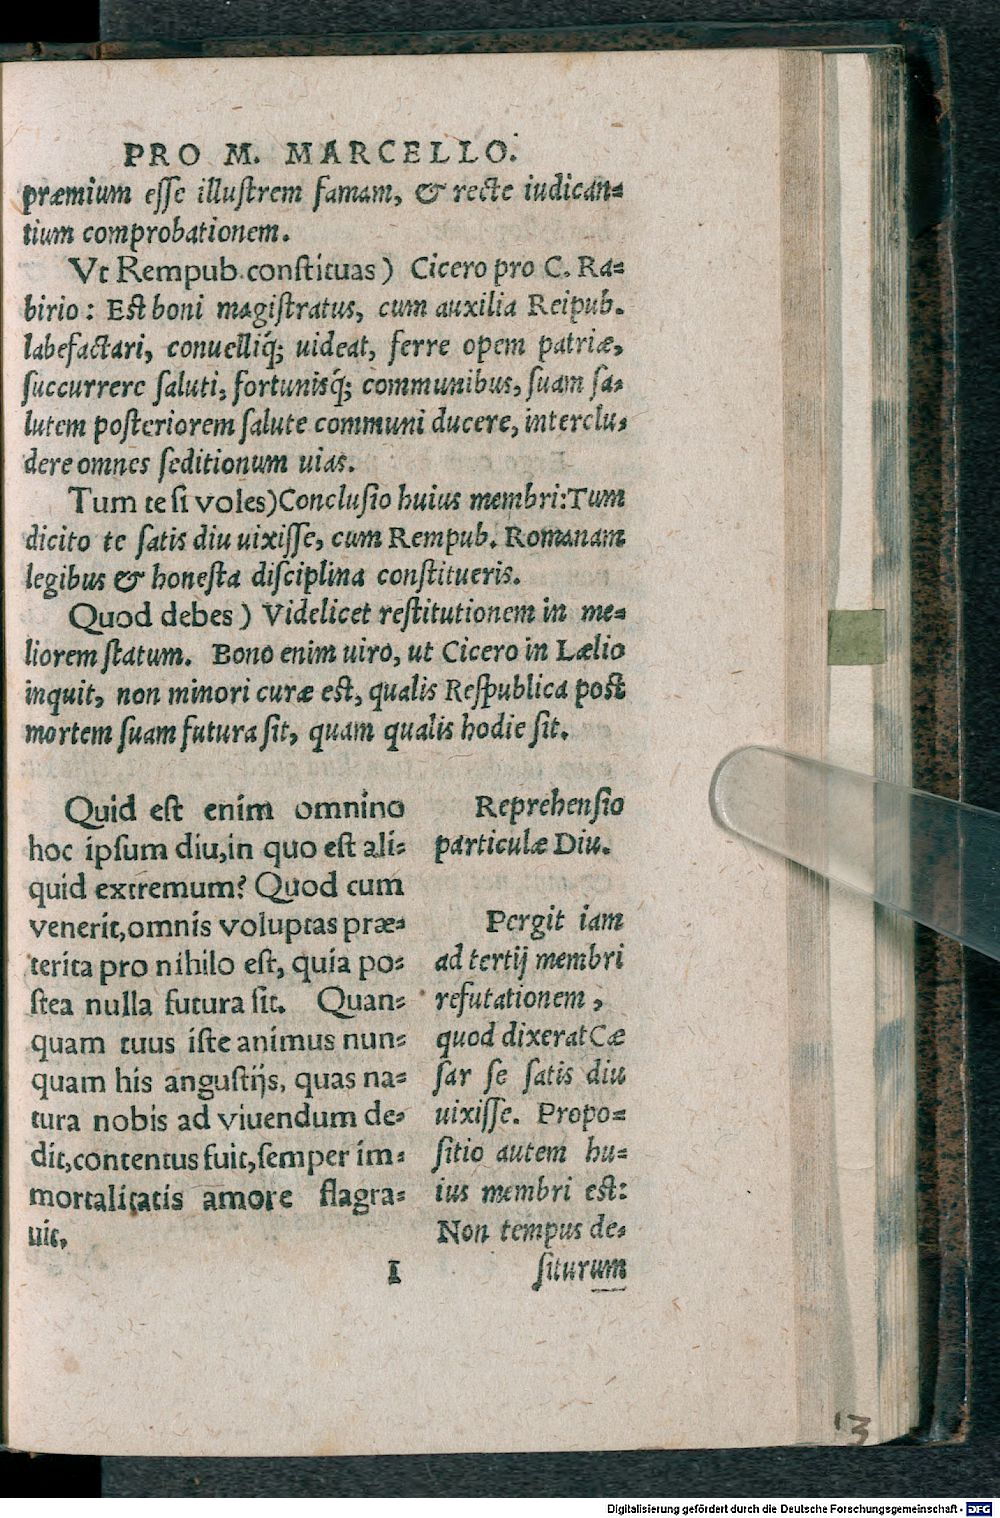 PRO M. MARCELLO.
præmium esse illustrem famam, & recte iudican-
tium comprobationem.
Vt Rempub. constituas) Cicero pro C. Ra-
birio: Est boni magistratus, cum auxilia Reipub.
labefactari, conuelliq́; uideat, ferre opem patriæ,
succurrere saluti, fortunisq́; communibus, suam sa-
lutem posteriorem salute communi ducere, interclu-
dere omnes seditionum uias.
Tum te si voles) Conclusio huius membri: Tum
dicito te satis diu uixisse, cum Rempub. Romanam
legibus & honesta disciplina constitueris.
Quod debes) Videlicet restitutionem in me-
liorem statum. Bono enim uiro, ut Cicero in Lælio
inquit, non minori curæ est, qualis Respublica post
mortem suam futura sit, quam qualis hodie sit.
Quid est enim omnino
hoc ipsum diu, in quo est ali-
quid extremum? Quod cum
venerit, omnis voluptas præ-
terita pro nihilo est, quia po-
stea nulla futura sit. Quan-
quam tuus iste animus nun-
quam his angustijs, quas na-
tura nobis ad viuendum de-
dit, contentus fuit, semper im-
mortalitatis amore flagra-
uit.
Reprehensio
particulæ Diu.
Pergit iam
ad tertij membri
refutationem,
quod dixerat Cæ
sar se satis diu
uixisse. Propo-
sitio autem hu-
ius membri est:
Non tempus de-
siturum
I
13
Digitalisierung gefördert durch die Deutsche Forschungsgemeinschaft - DFG